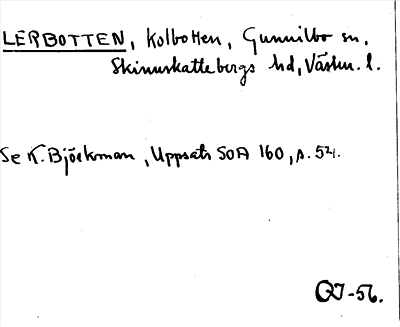 LERBOTTEN, Kolbotten, Gunnilbo sn,
Skinnskattebergs hd, Västm. l.
Se K. Björkman, Uppsats SOA 160, s. 54.
QJ-56.